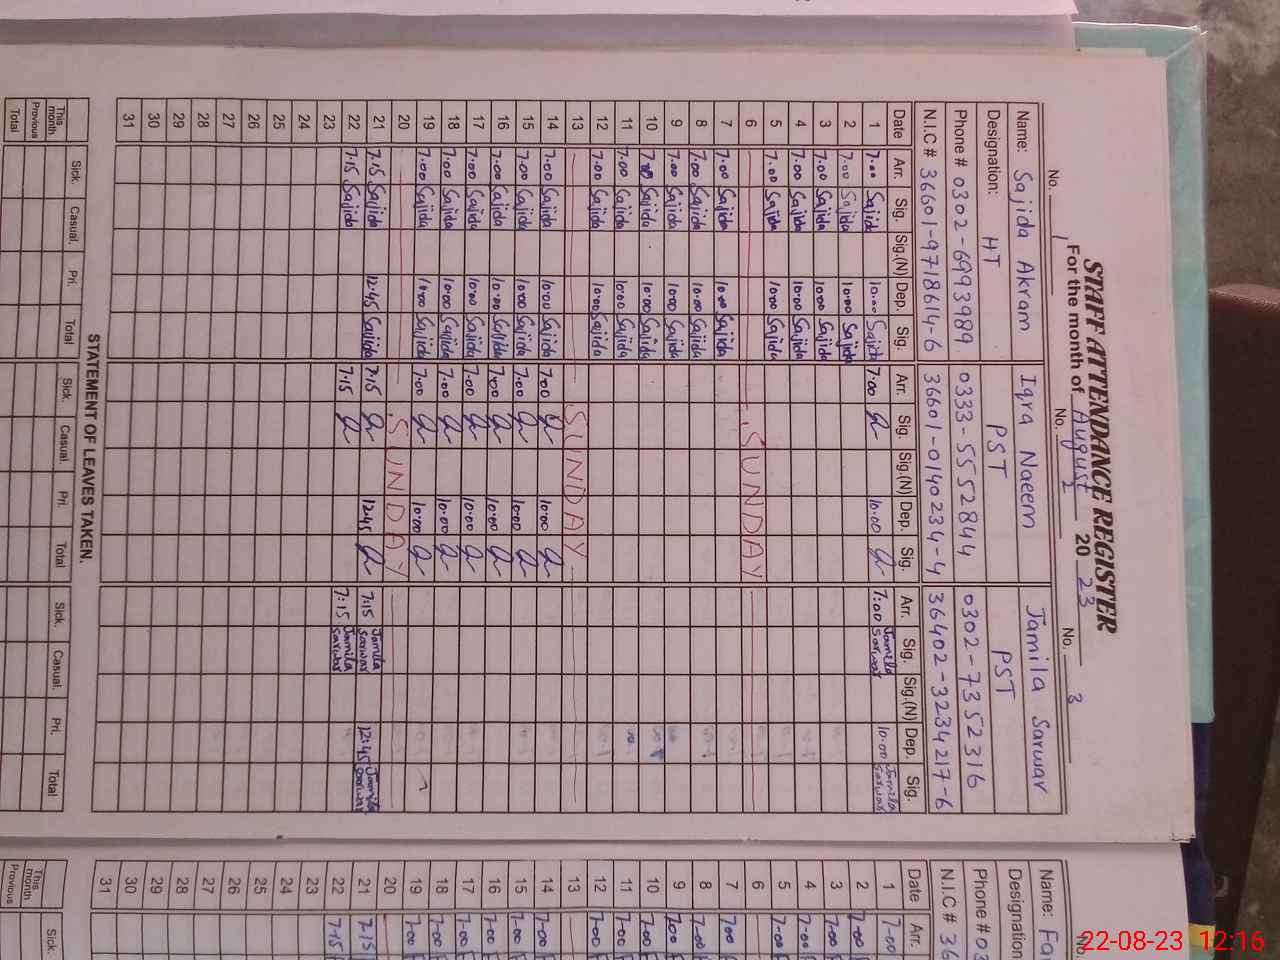 STAFF ATTENDANCE REGISTER
For the month of August 2023
No. 1 No. 2 No. 3
Name: Sajida Akram Iqra Naeem Jamila Sarwar
Designation: HT PST PST
Phone # 0302-6993989 0333-5552844 0302-7352316
N.I.C # 36601-9718614-6 36601-0140234-4 36402-3234217-6
Date Arr. Sig. Sig.(N) Dep. Sig. Arr. Sig. Sig.(N) Dep. Sig. Arr. Sig. Sig.(N) Dep. Sig.
1 7.00 Sajida 10.00 Sajida 7.00 10.00 7:00 Jamila Sarwar 10.00 Jamila Sarwar
2 7.00 Sajida 10.00 Sajida
3 7.00 Sajida 10.00 Sajida
4 7.00 Sajida 10.00 Sajida
5 7.00 Sajida 10.00 Sajida
6 SUNDAY
7 7.00 Sajida 10.00 Sajida
8 7.00 Sajida 10.00 Sajida
9 7.00 Sajida 10.00 Sajida
10 Sajida 10.00 Sajida
11 7.00 Sajida 10.00 Sajida
12 7.00 Sajida 10.00 Sajida
13 SUNDAY
14 7.00 Sajida 10.00 Sajida 7.00 10.00
15 7.00 Sajida 10.00 Sajida 7.00 10.00
16 7.00 Sajida 10.00 Sajida 7.00 10.00
17 7.00 Sajida 10.00 Sajida 7.00 10.00
18 7.00 Sajida 10.00 Sajida 7.00 10.00
19 7.00 Sajida 10.00 Sajida 7.00 10.00
20 SUNDAY
21 7.15 Sajida 12.45 Sajida 7.15 12.45 7:15 Jamila Sarwar 12:45 Jamila Sarwar
22 7.15 Sajida 7.15 7:15 Jamila Sarwar
23
24
25
26
27
28
29
30
31
STATEMENT OF LEAVES TAKEN.
Sick. Casual. Pri. Total Sick. Casual. Pri. Total Sick. Casual. Pri. Total
This month
Previous
Total
No.
Name: Far
Designation
Phone # 03
N.I.C # 36
Date Arr.
1 7-00
2 7-00
3 7-00
4 7-00
5 7-00
6
7 7-00
8 7-00
9 7-00
10 7-00
11 7-00
12 7-00
13
14 7-00
15 7-00
16 7-00
17 7-00
18 7-00
19 7-00
20
21 7-15
22 7-15
23
24
25
26
27
28
29
30
31
Sick.
This month
Previous
22-08-23 12:16